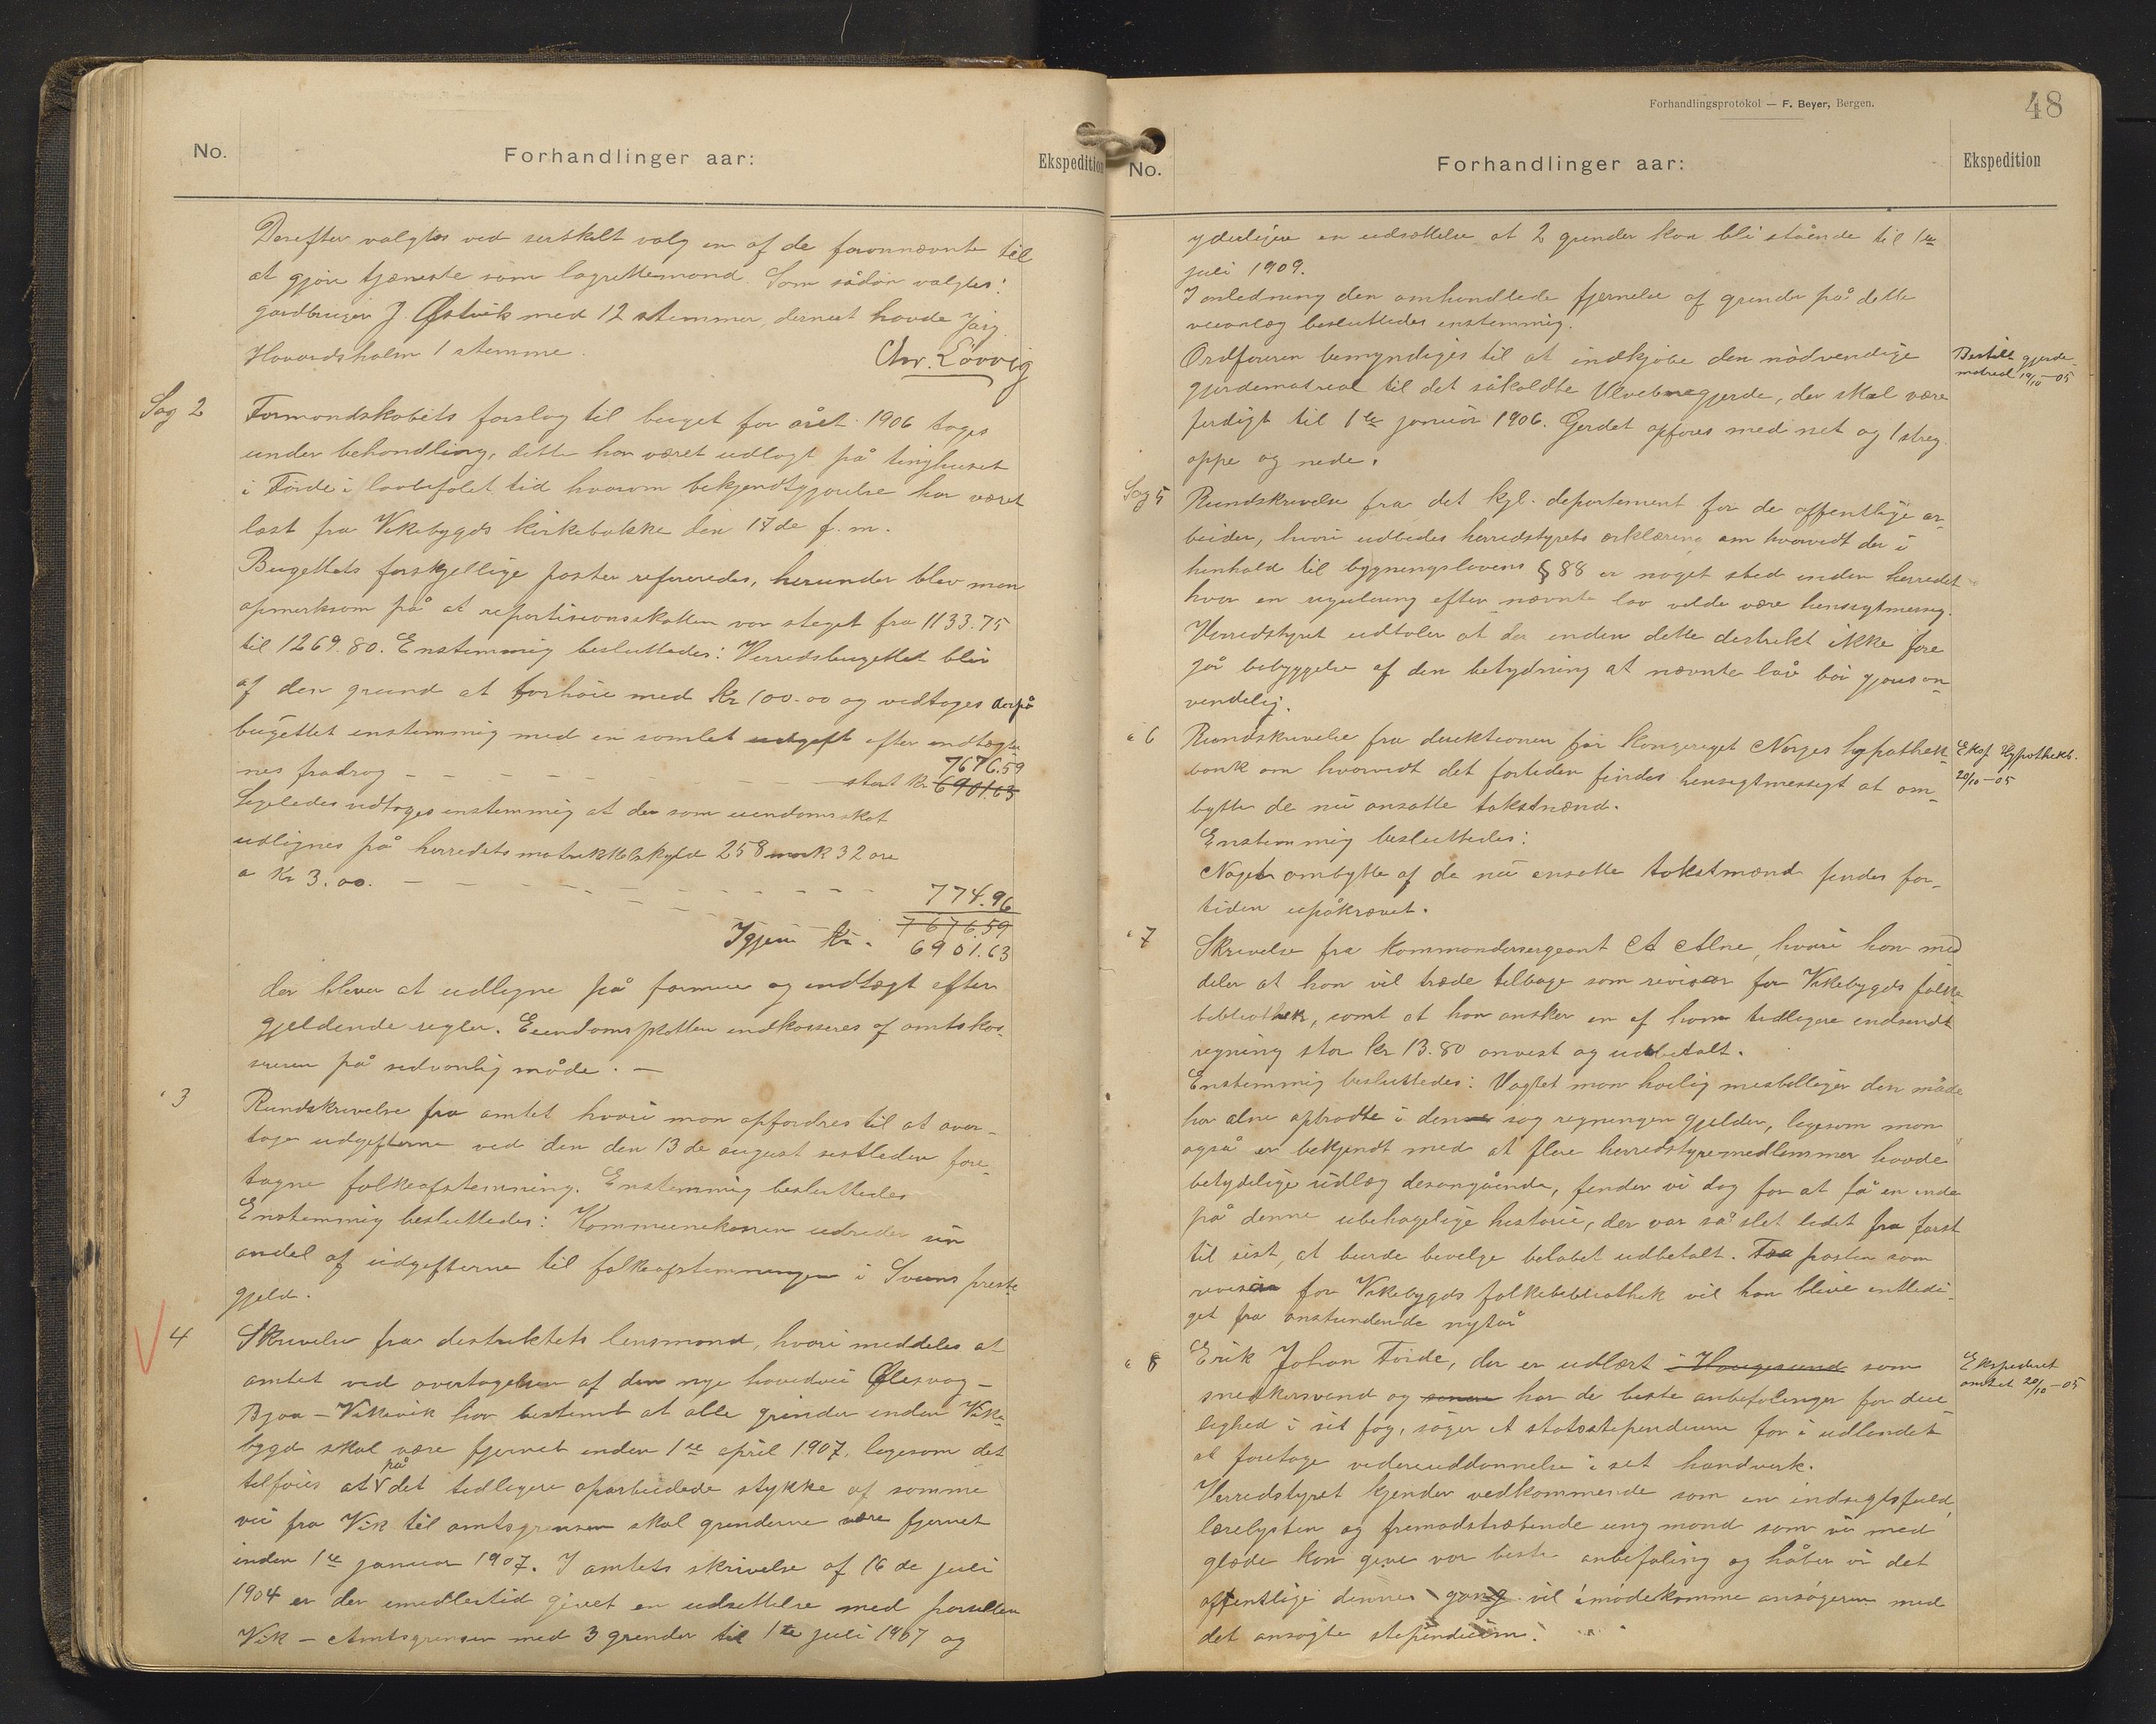 No.
Forhandlinger aar:
Ekspedition
Derefter valgtes ved serskilt valg en af de fornævnte til
at gjøre tjæneste som lagrettemand Som sådan valgtes:
gardbruger J. Østvik med 12 stemmer, dernest havde
Havardsholm 1 stemme. Chr. Lovvig
Sag 2
Formandskabets forslag til buget for året 1906 toges
under behandling, dette har været udlagt på tinghuset
i Førde i lovbefalet tid hvorom bekjendtgjørelse har været
læst fra Vikebygds kirkebakke den 17de f. m.
Bugettets forskjellige poster refereredes, herunder blev man
opmerksom på at repartisionsskatten var steget fra 1133.75
til 1269.80. Enstemmig besluttedes: Herredsbugettet blir
af den grund at forhøie med kr 100.00 og vedtoges derpå
bugettet enstemmig med en samlet udgift efter indtægter
nes fradrag – – – – – – stort kr 7676.59
6901.63
Ligeledes vedtoges enstemmig at der som eiendomsskat
udlignes på herredets matrikkelskyld 258 mark 32 øre
a kr 3.00. – – – – – – – 774.96
7676.59
Igjen kr. 6901.63
der bliver at udligne på formue og indtægt efter
gjeldende regler. Eiendomsskatten indkasseres af amtskas-
sereren på sedvanlig måde. –
" 3
Rundskrivelse fra amtet hvori man opfordres til at over-
tage udgifterne ved den den 13de august sistleden fore-
tagne folkeafstemning. Enstemmig besluttedes
Enstemmig besluttedes: Kommunekassen udreder sin
andel af udgifterne til folkeafstemningen i Sveens preste
gjeld.
4
Skrivelse fra destriktets lensmand, hvori meddeles at
amtet ved overtagelsen af den nye hovedvei Ølesvag –
Bjoa – Vikevik har bestemt at alle grinder inden Vike-
bygd skal være fjernet inden 1ste april 1907, ligesom det
tilføies at på det tidligere oparbeidede stykke af samme
vei fra Vik til amtsgrensen skal grinderne være fjernet
inden 1ste januar 1907. I amtets skrivelse af 16de juli
1904 er der imidlertid givet en udsettelse med parsellen
Vik – Amtsgrensen med 3 grinder til 1ste juli 1907 og
Forhandlingsprotokol — F. Beyer, Bergen.
48
No.
Forhandlinger aar:
Ekspedition
yderligere en udsættelse at 2 grinder kan bli stående til 1ste
juli 1909.
I anledning den omhandlede fjernelse af grinder på dette
veianlæg besluttedes enstemmig.
Ordføreren bemyndiges til at indkjøbe den nødvendige
gjerdematreal til det såkaldte Ulvebnegjerde, der skal være
ferdigt til 1ste januar 1906. Gerdet opføres med net og 1 streg
oppe og nede.
Bestilt gjerde
matreal 19/10–05
Sag 5
Rundskrivelse fra det kgl. departement for de offentlige ar-
beider, hvori udbedes herredstyrets erklæring om hvorvidt der i
henhold til bygningslovens § 88 er noget sted inden herredet
hvor en regulering efter nævnte lov vilde være hensigtmessig.
Herredstyret udtaler at der inden dette destrikt ikke fore
går bebyggelse af den betydning at nævnte lov bør gjøres an-
vendelig.
" 6
Rundskrivelse fra direktionen for kongeriget Norges hypothek-
bank om hvorvidt det fortiden findes hensigtmessigt at om-
bytte de nu ansatte takstmænd.
Eksp. Hypothekb.
20/10–05
Enstemmig besluttedes:
Noget ombytte af de nu ansatte takstmænd findes for-
tiden upåkrævet.
" 7
Skrivelse fra kommandersergeant A Alne, hvori han med
deler at han vil træde tilbage som revisor for Vikebygds folke-
bibliothek, samt at han ønsker en af ham tidligere indsendt
regning stor kr 13.80 anvist og udbetalt.
Enstemmig besluttedes: Uagtet man høilig misbilliger den måde
hr Alne optrådte i denne sag regningen gjelder, ligesom man
også er bekjendt med at flere herredstyremedlemmer havde
betydelige udlæg desangående, finder vi dog for at få en ende
på denne ubehagelige historie, der var så slet ledet fra først
til sist, at burde bevilge beløbet udbetalt. Fra posten som
revisor for Vikebygds folkebibliothek vil han blive entledi-
get fra anstundende nytår
" 8
Erik Johan Førde, der er udlært i Haugesund som
snedkersvend og senere har de beste anbefalinger for due-
lighed i sit fag, søger et statsstependium for i udlandet
at foretage videreuddannelse i sit handverk.
Ekspederet
amtet 20/10–05
Herredstyret kjender vedkommende som en indsigtsfuld,
lærelysten og fremadstræbende ung mand som vi med
glæde kan give vor beste anbefaling og håber vi det
offentlige denne gang vil imødekomme ansøgeren med
det ansøgte stependium.